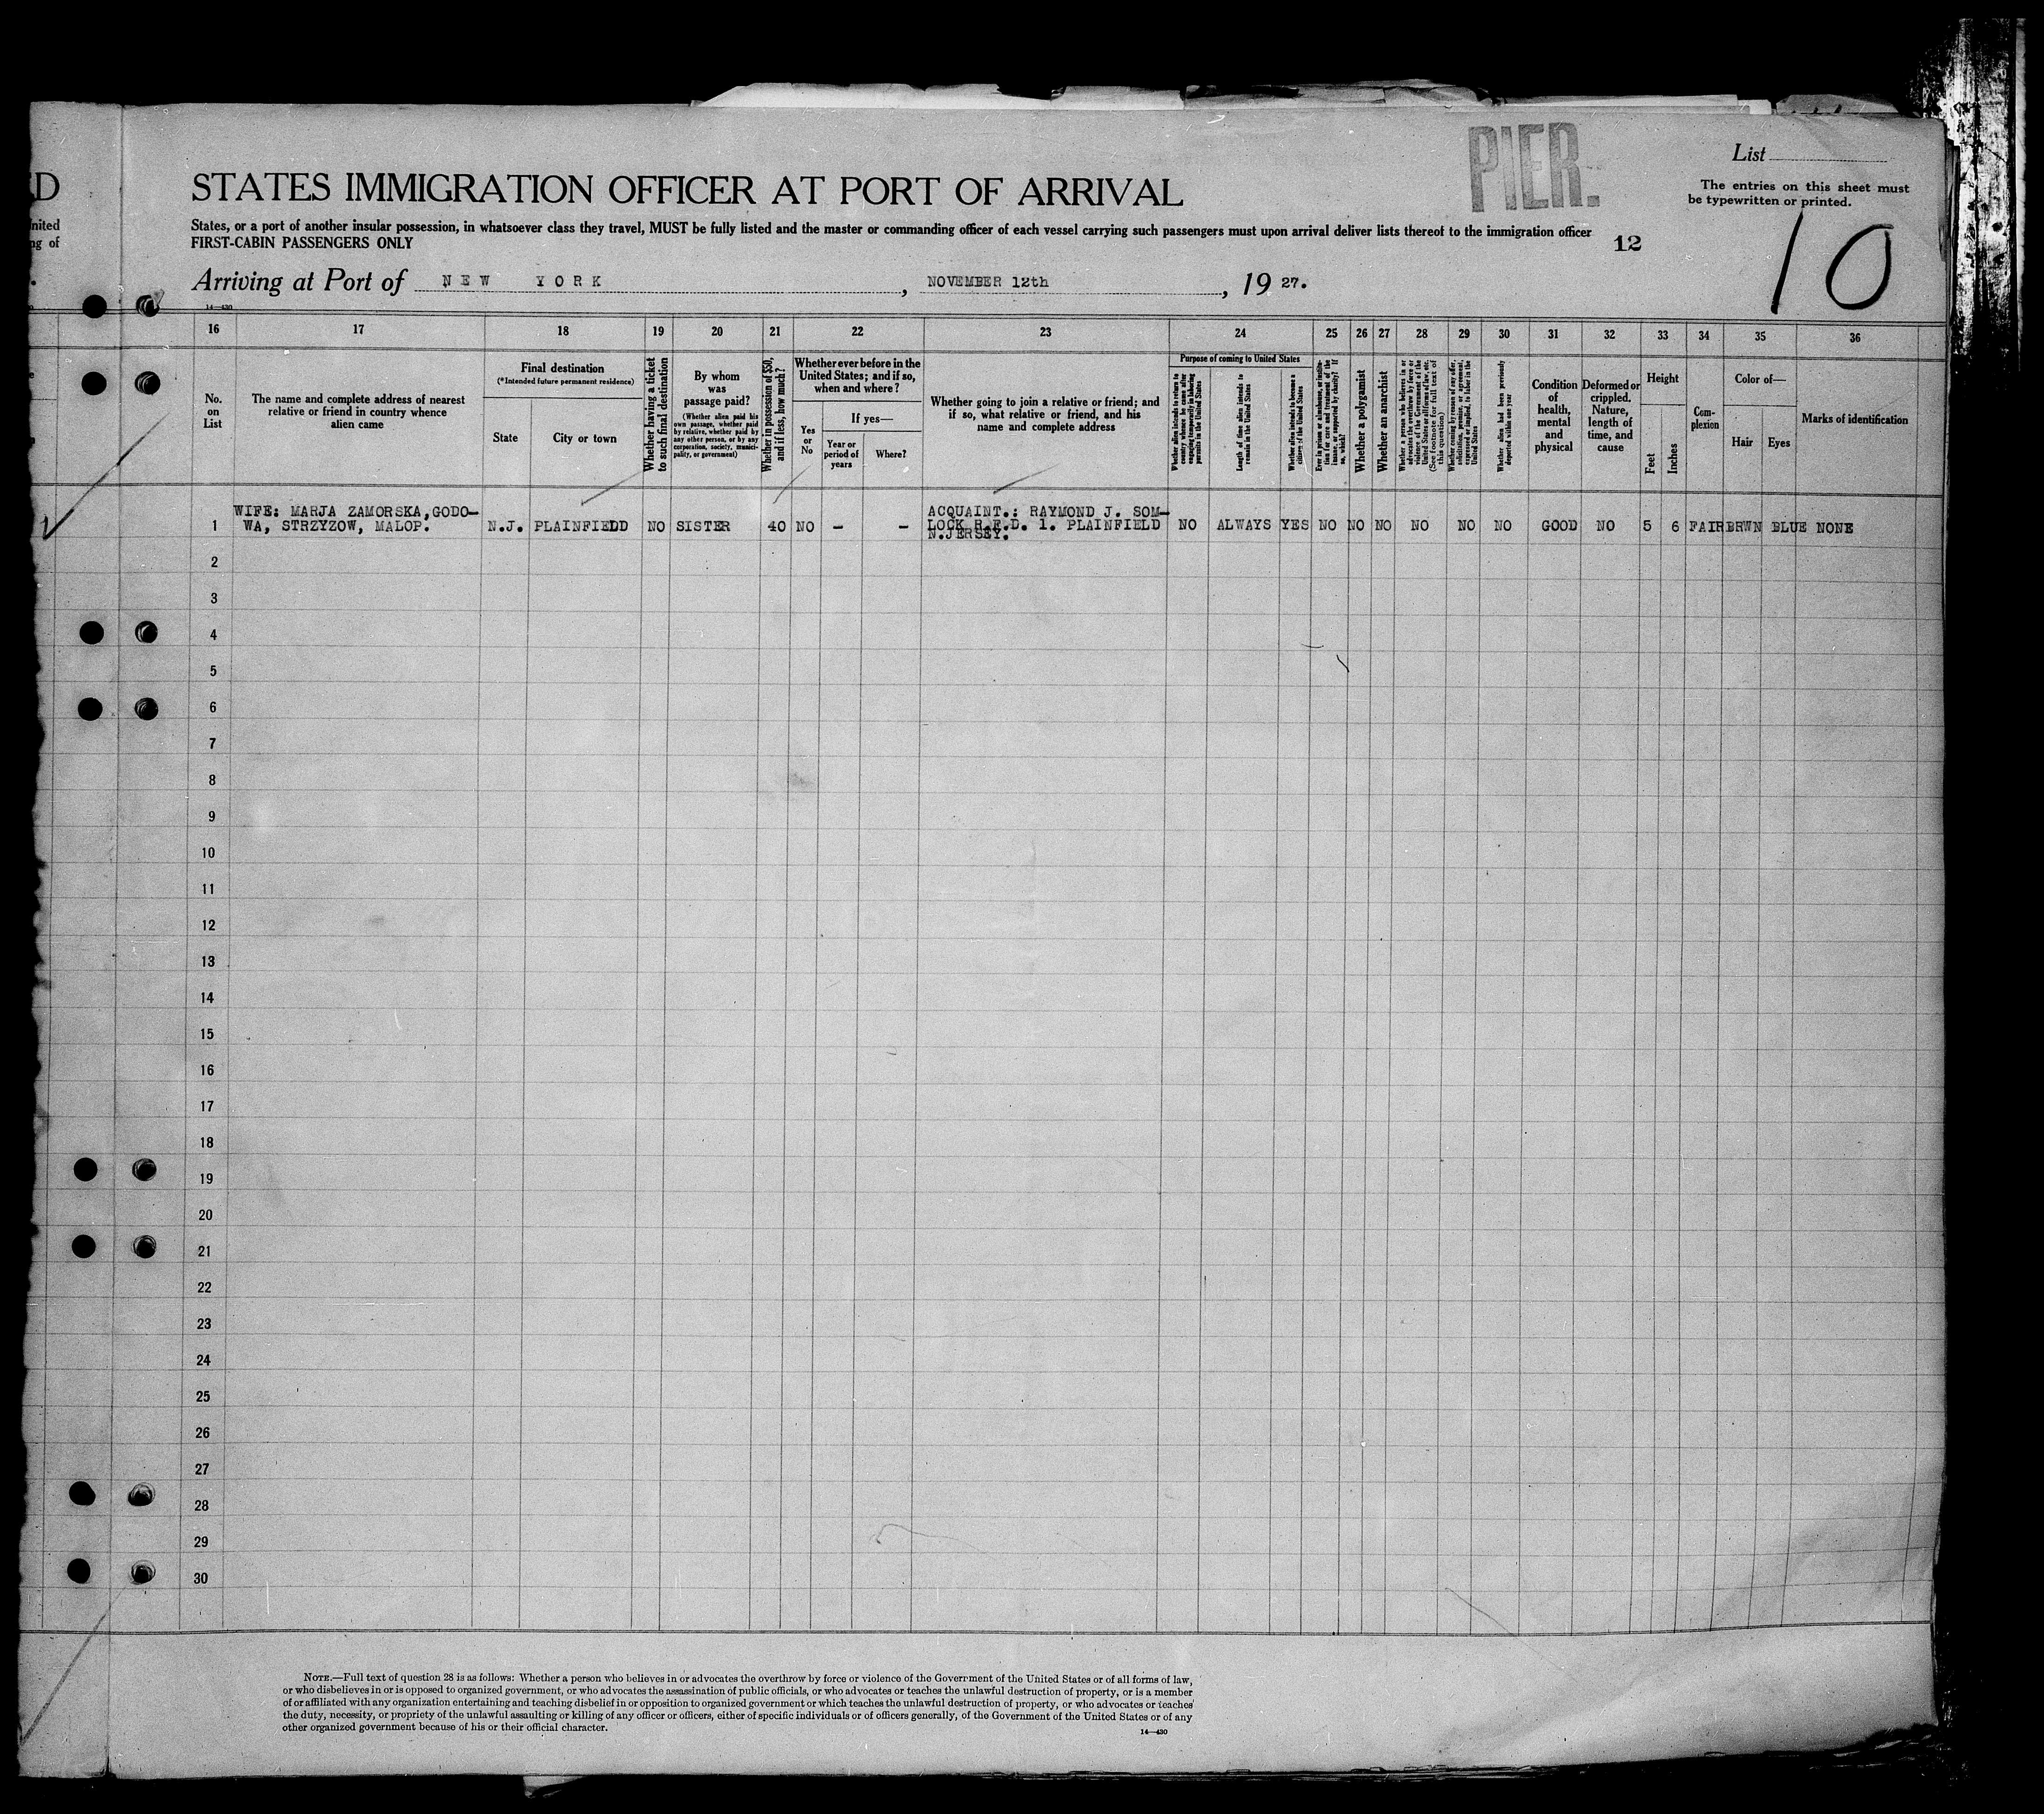 D
nited
ng of
PIER.
List
The entries on this sheet must
be typewritten or printed.
STATES IMMIGRATION OFFICER AT PORT OF ARRIVAL
States, or a port of another insular possession, in whatsoever class they travel, MUST be fully listed and the master or commanding officer of each vessel carrying such passengers must upon arrival deliver lists thereof to the immigration officer
FIRST-CABIN PASSENGERS ONLY
12
10
Arriving at Port of NEW YORK, NOVEMBER 12th, 19 27.
14—430
16 17 18 19 20 21 22 23 24 25 26 27 28 29 30 31 32 33 34 35 36
No.
on
List
The name and complete address of nearest
relative or friend in country whence
alien came
Final destination
(*Intended future permanent residence)
State
City or town
Whether having a ticket
to such final destination
By whom
was
passage paid?
(Whether alien paid his
own passage, whether paid
by relative, whether paid by
any other person, or by any
corporation, society, munici-
pality, or government)
Whether in possession of $50,
and if less, how much?
Whether ever before in the
United States; and if so,
when and where?
Yes
or
No
If yes—
Year or
period of
years
Where?
Whether going to join a relative or friend; and
if so, what relative or friend, and his
name and complete address
Purpose of coming to United States
Whether alien intends to return to
country whence he came after
engaging temporarily in laboring
pursuits in the United States
Length of time alien intends to
remain in the United States
Whether alien intends to become a
citizen of the United States
Ever in prison or almshouse, or institu-
tion for care and treatment of the
insane, or supported by charity? If
so, which?
Whether a polygamist
Whether an anarchist
Whether a person who believes in or
advocates the overthrow by force or
violence of the Government of the
United States or all forms of law, etc.
(See footnote for full text of
this question)
Whether coming by reason of any offer,
solicitation, promise, or agreement,
expressed or implied, to labor in the
United States
Whether alien had been previously
deported within one year
Condition
of
health,
mental
and
physical
Deformed or
crippled.
Nature,
length of
time, and
cause
Height
Feet
Inches
Com-
plexion
Color of—
Hair
Eyes
Marks of identification
WIFE: MARJA ZAMORSKA,GODO-
WA, STRZYZOW, MALOP.
ACQUAINT.: RAYMOND J. SOM-
LOCK R.F.D. 1. PLAINFIELD
N.JERSEY.
1 N.J. PLAINFIELD NO SISTER 40 NO - - NO ALWAYS YES NO NO NO NO NO NO GOOD NO 5 6 FAIR BRWN BLUE NONE
2
3
4
5
6
7
8
9
10
11
12
13
14
15
16
17
18
19
20
21
22
23
24
25
26
27
28
29
30
NOTE.—Full text of question 28 is as follows: Whether a person who believes in or advocates the overthrow by force or violence of the Government of the United States or of all forms of law,
or who disbelieves in or is opposed to organized government, or who advocates the assassination of public officials, or who advocates or teaches the unlawful destruction of property, or is a member
of or affiliated with any organization entertaining and teaching disbelief in or opposition to organized government or which teaches the unlawful destruction of property, or who advocates or teaches
the duty, necessity, or propriety of the unlawful assaulting or killing of any officer or officers, either of specific individuals or of officers generally, of the Government of the United States or of any
other organized government because of his or their official character.
14—430